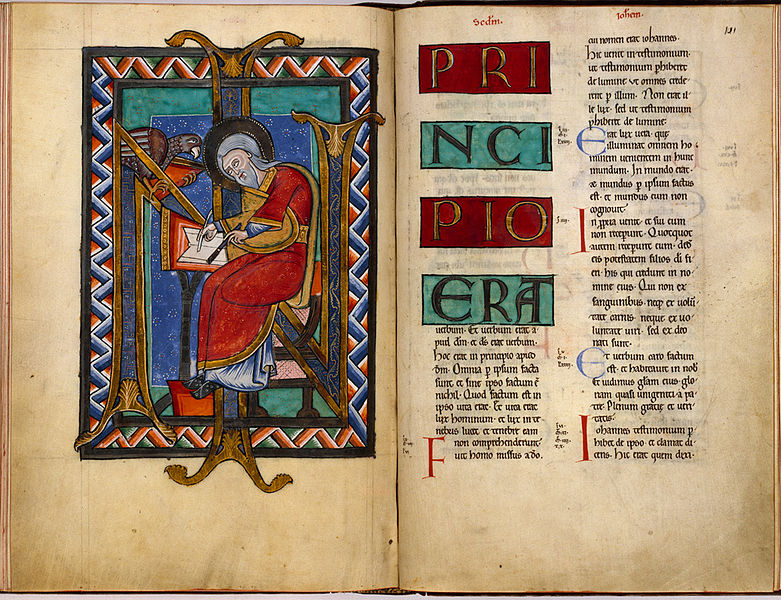 IN
Scdm.
Iohem.
121
PRI
NCI
PIO
ERAT
uerbum. Et uerbum erat a
pud dm. et ds erat uerbum.
Hoc erat in principio apud
dm. Omnia p ipsum facta
sunt. et sine ipso factum e
nichil. Quod factum est in
ipso uita erat. Et uita erat
lux hominum. et lux in te
nebris lucet. et tenebre eam
non comprehenderunt.
Fuit homo missus a do.
cui nomen erat iohannes.
Hic uenit in testimonium.
ut testimonium phiberet
de lumine. ut omnes crede
rent p illum. Non erat il
le lux. sed ut testimonium
phiberet de lumine.
Erat lux uera. que
illuminat omnem ho
minem uenientem in hunc
mundum. In mundo erat.
et mundus p ipsum factus
est. et mundus eum non
cognouit.
In ppria uenit. et sui eum
non receperunt. Quotquot
autem receperunt eum. dedit
eis potestatem filios di fi
eri. His qui credunt in no
mine eius. Qui non ex
sanguinibus. neq ex uolun
tate carnis. neque ex uo
luntate uiri. sed ex deo
nati sunt.
Et uerbum caro factum
est. et habitauit in nob
et uidimus gliam eius. glo
riam quasi unigeniti a pa
tre. Plenum gratie et ueri
tatis.
Iohannes testimonium p
hibet de ipso. et clamat di
cens. Hic erat quem dixi.